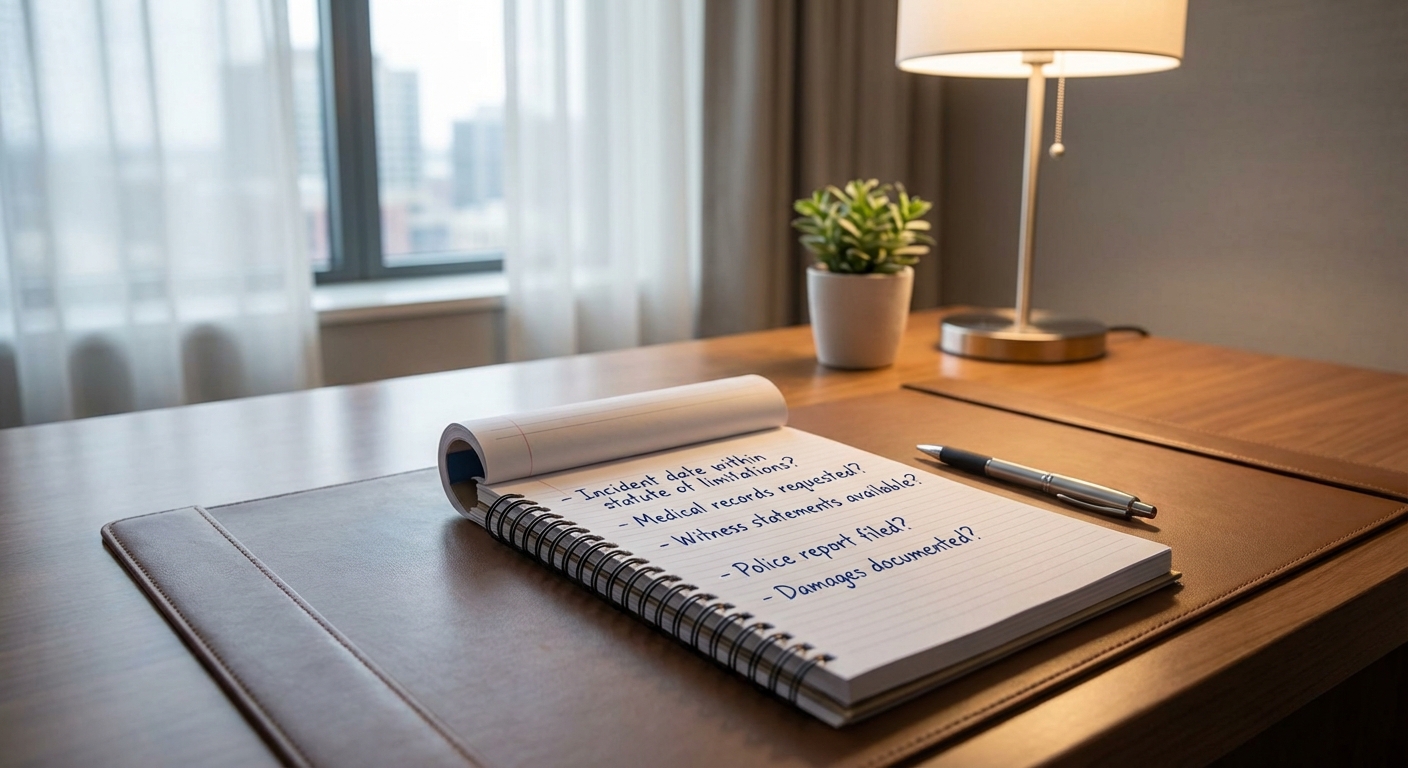 - Incident date within
statute of limitations?
- Medical records requested?
- Witness statements available?
- Police report filed?
- Damages documented?